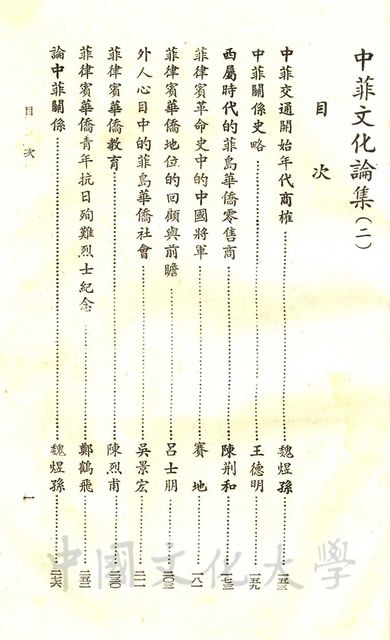 中菲文化論集(二)
目次
中菲交通開始年代商榷 魏煜孫 一五三
中菲關係史略 王德明 一五九
西屬時代的菲島華僑零售商 陳荆和 一七三
菲律賓革命史中的中國將軍 賽地 一八一
菲律賓華僑地位的回顧與前瞻 呂士朋 二〇三
外人心目中的菲島華僑社會 吳景宏 二一一
菲律賓華僑教育 陳烈甫 二三〇
菲律賓華僑青年抗日殉難烈士紀念 鄭鶴飛 二五二
論中菲關係 魏煜孫 二六六
目次
一
中國文化大學